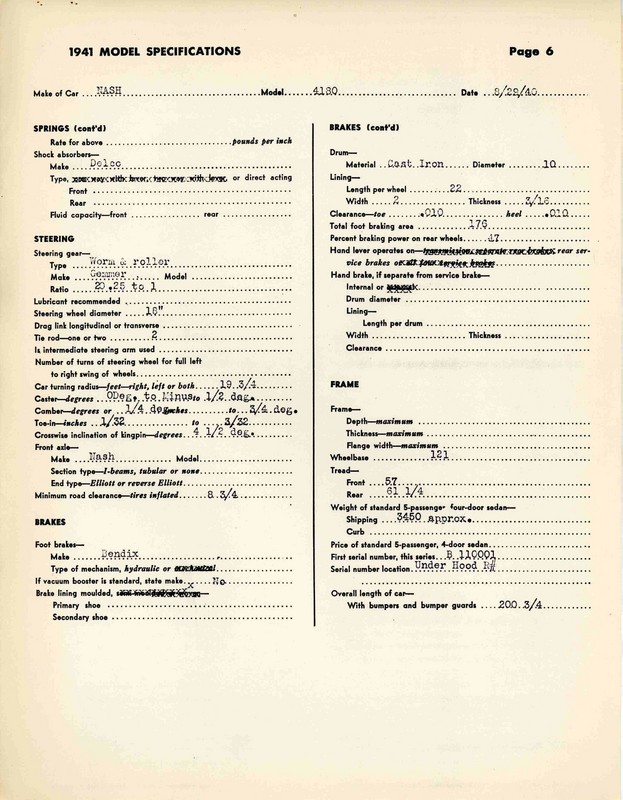 1941 MODEL SPECIFICATIONS Page 6
Make of Car NASH Model 4180 Date 8/29/40
SPRINGS (cont'd)
Rate for above pounds per inch
Shock absorbers—
Make Delco
Type, one way with lever, two way with lever, or direct acting
Front
Rear
Fluid capacity—front rear
STEERING
Steering gear—
Type Worm & roller
Make Gemmer Model
Ratio 20.25 to 1
Lubricant recommended
Steering wheel diameter 18"
Drag link longitudinal or transverse
Tie rod—one or two 2
Is intermediate steering arm used
Number of turns of steering wheel for full left
to right swing of wheels
Car turning radius—feet—right, left or both 19 3/4
Caster—degrees 0Deg. to Minus to 1/2 deg.
Camber—degrees or inches 1/4 deg. to 3/4 deg.
Toe-in—inches 1/32 to 3/32
Crosswise inclination of kingpin—degrees 4 1/2 deg.
Front axle—
Make Nash Model
Section type—I-beams, tubular or none
End type—Elliott or reverse Elliott
Minimum road clearance—tires inflated 8 3/4
BRAKES
Foot brakes—
Make Bendix
Type of mechanism, hydraulic or mechanical
If vacuum booster is standard, state make No
Brake lining moulded,
Primary shoe
Secondary shoe
BRAKES (cont'd)
Drum—
Material Cast Iron Diameter 10
Lining—
Length per wheel 22
Width 2 Thickness 3/16
Clearance—toe .010 heel .010
Total foot braking area 176
Percent braking power on rear wheels 47
Hand lever operates on—transmission, separate rear brakes, rear ser-
vice brakes or all four service brakes
Hand brake, if separate from service brake—
Internal or
Drum diameter
Lining—
Length per drum
Width Thickness
Clearance
FRAME
Frame—
Depth—maximum
Thickness—maximum
Flange width—maximum
Wheelbase 121
Tread—
Front 57
Rear 61 1/4
Weight of standard 5-passenger four-door sedan—
Shipping 3450 approx.
Curb
Price of standard 5-passenger, 4-door sedan
First serial number, this series B 110001
Serial number location Under Hood R#
Overall length of car—
With bumpers and bumper guards 200 3/4